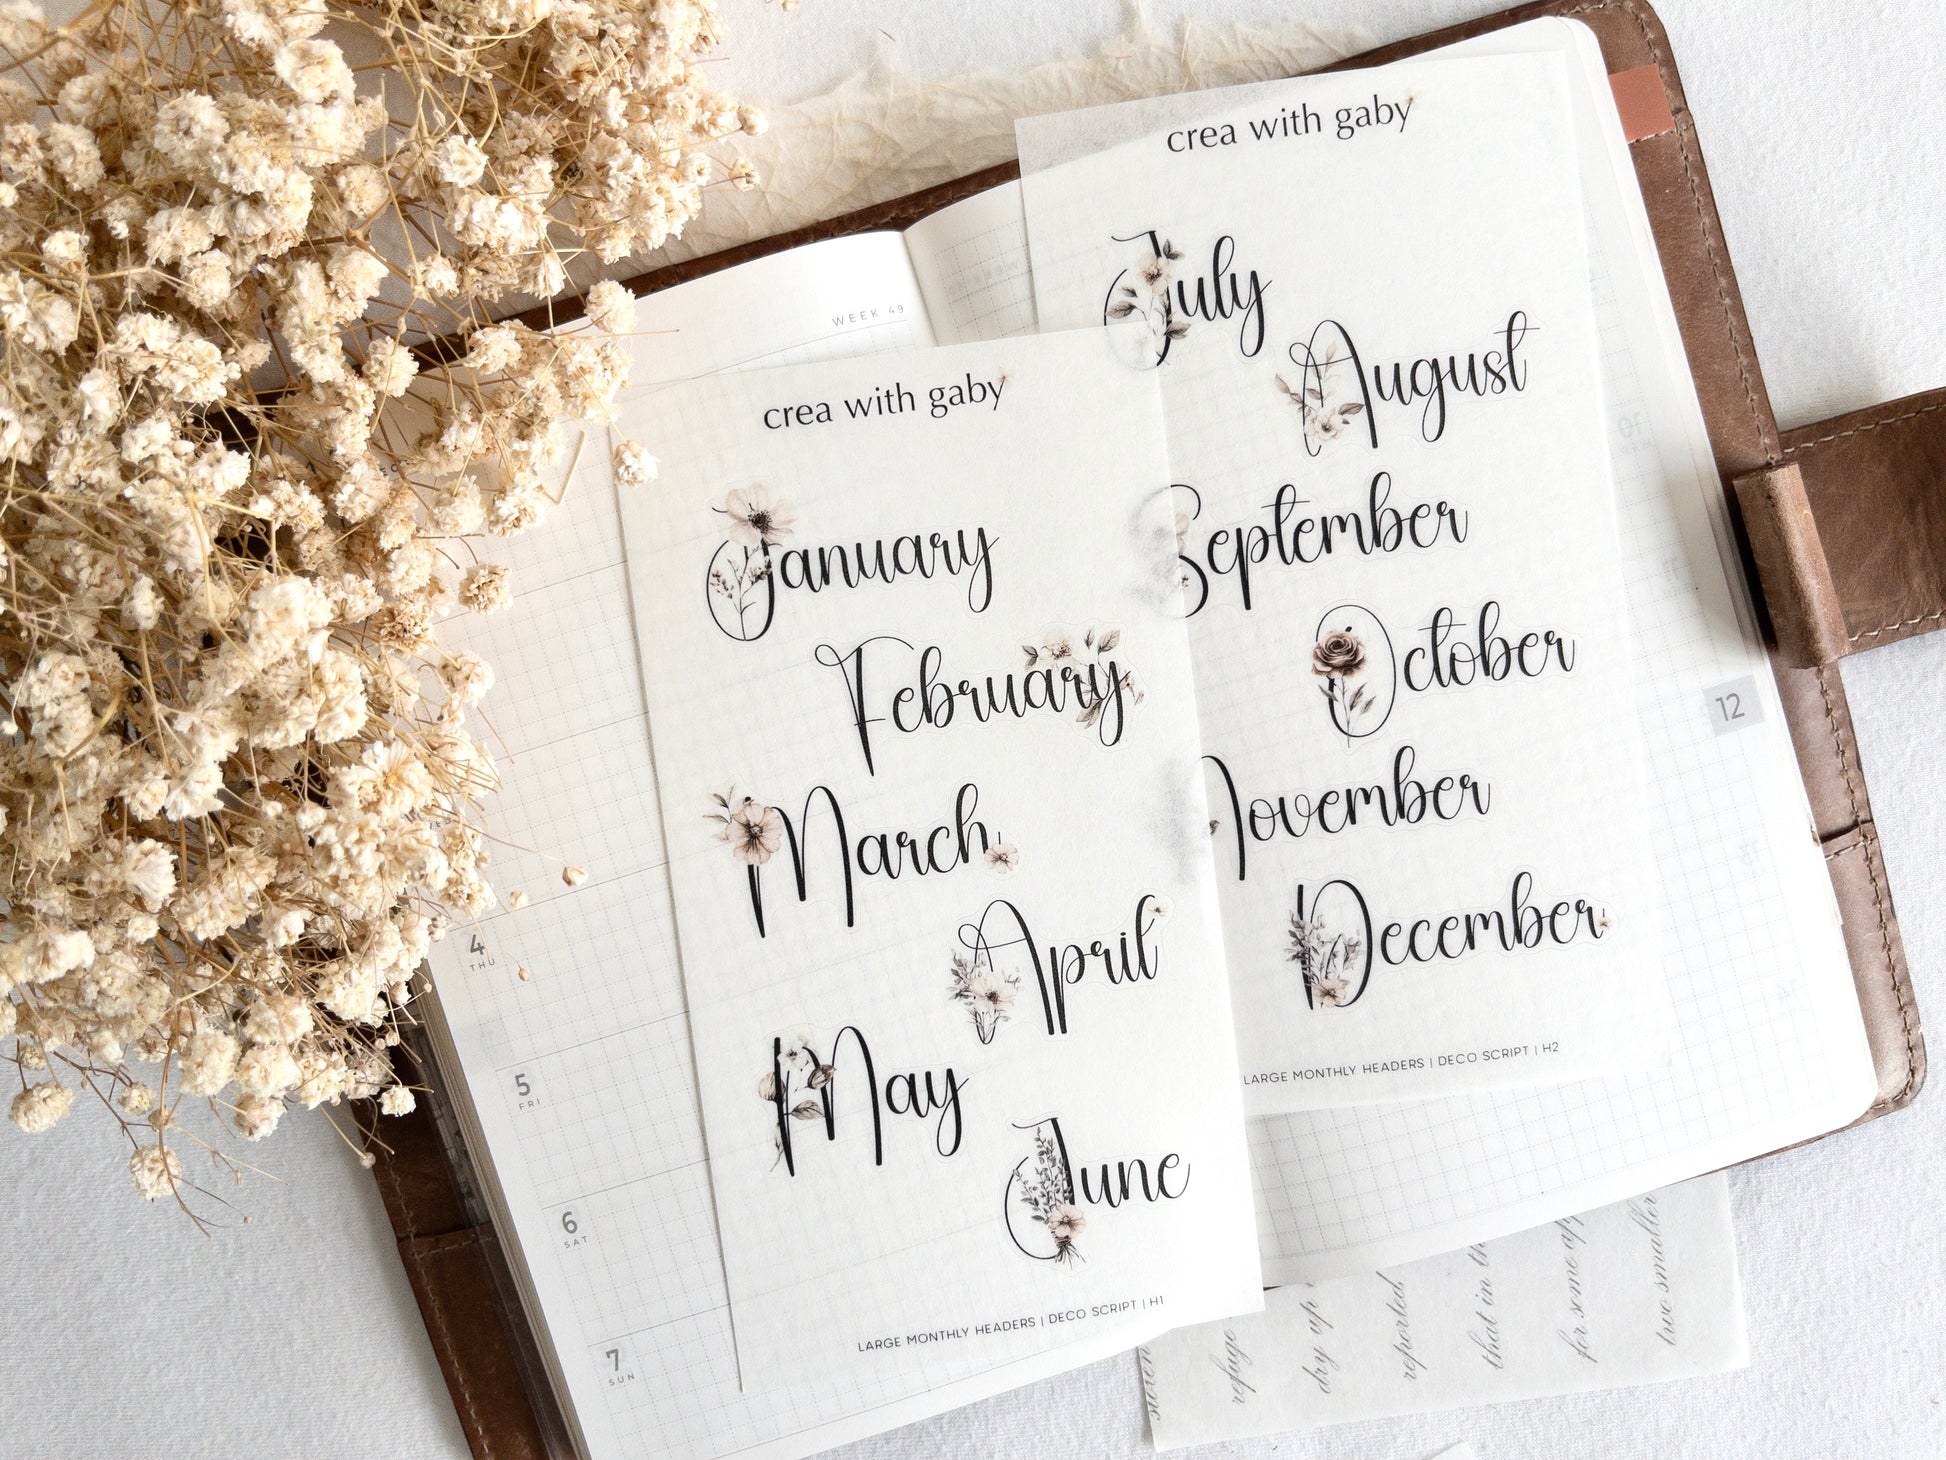 WEEK 49
4
THU
5
FRI
6
SAT
7
SUN
crea with gaby
January
February
March
April
May
June
LARGE MONTHLY HEADERS | DECO SCRIPT | H1
crea with gaby
July
August
September
October
November
December
LARGE MONTHLY HEADERS | DECO SCRIPT | H2
12
refuge
dry up
reported
that in
for some
two smaller